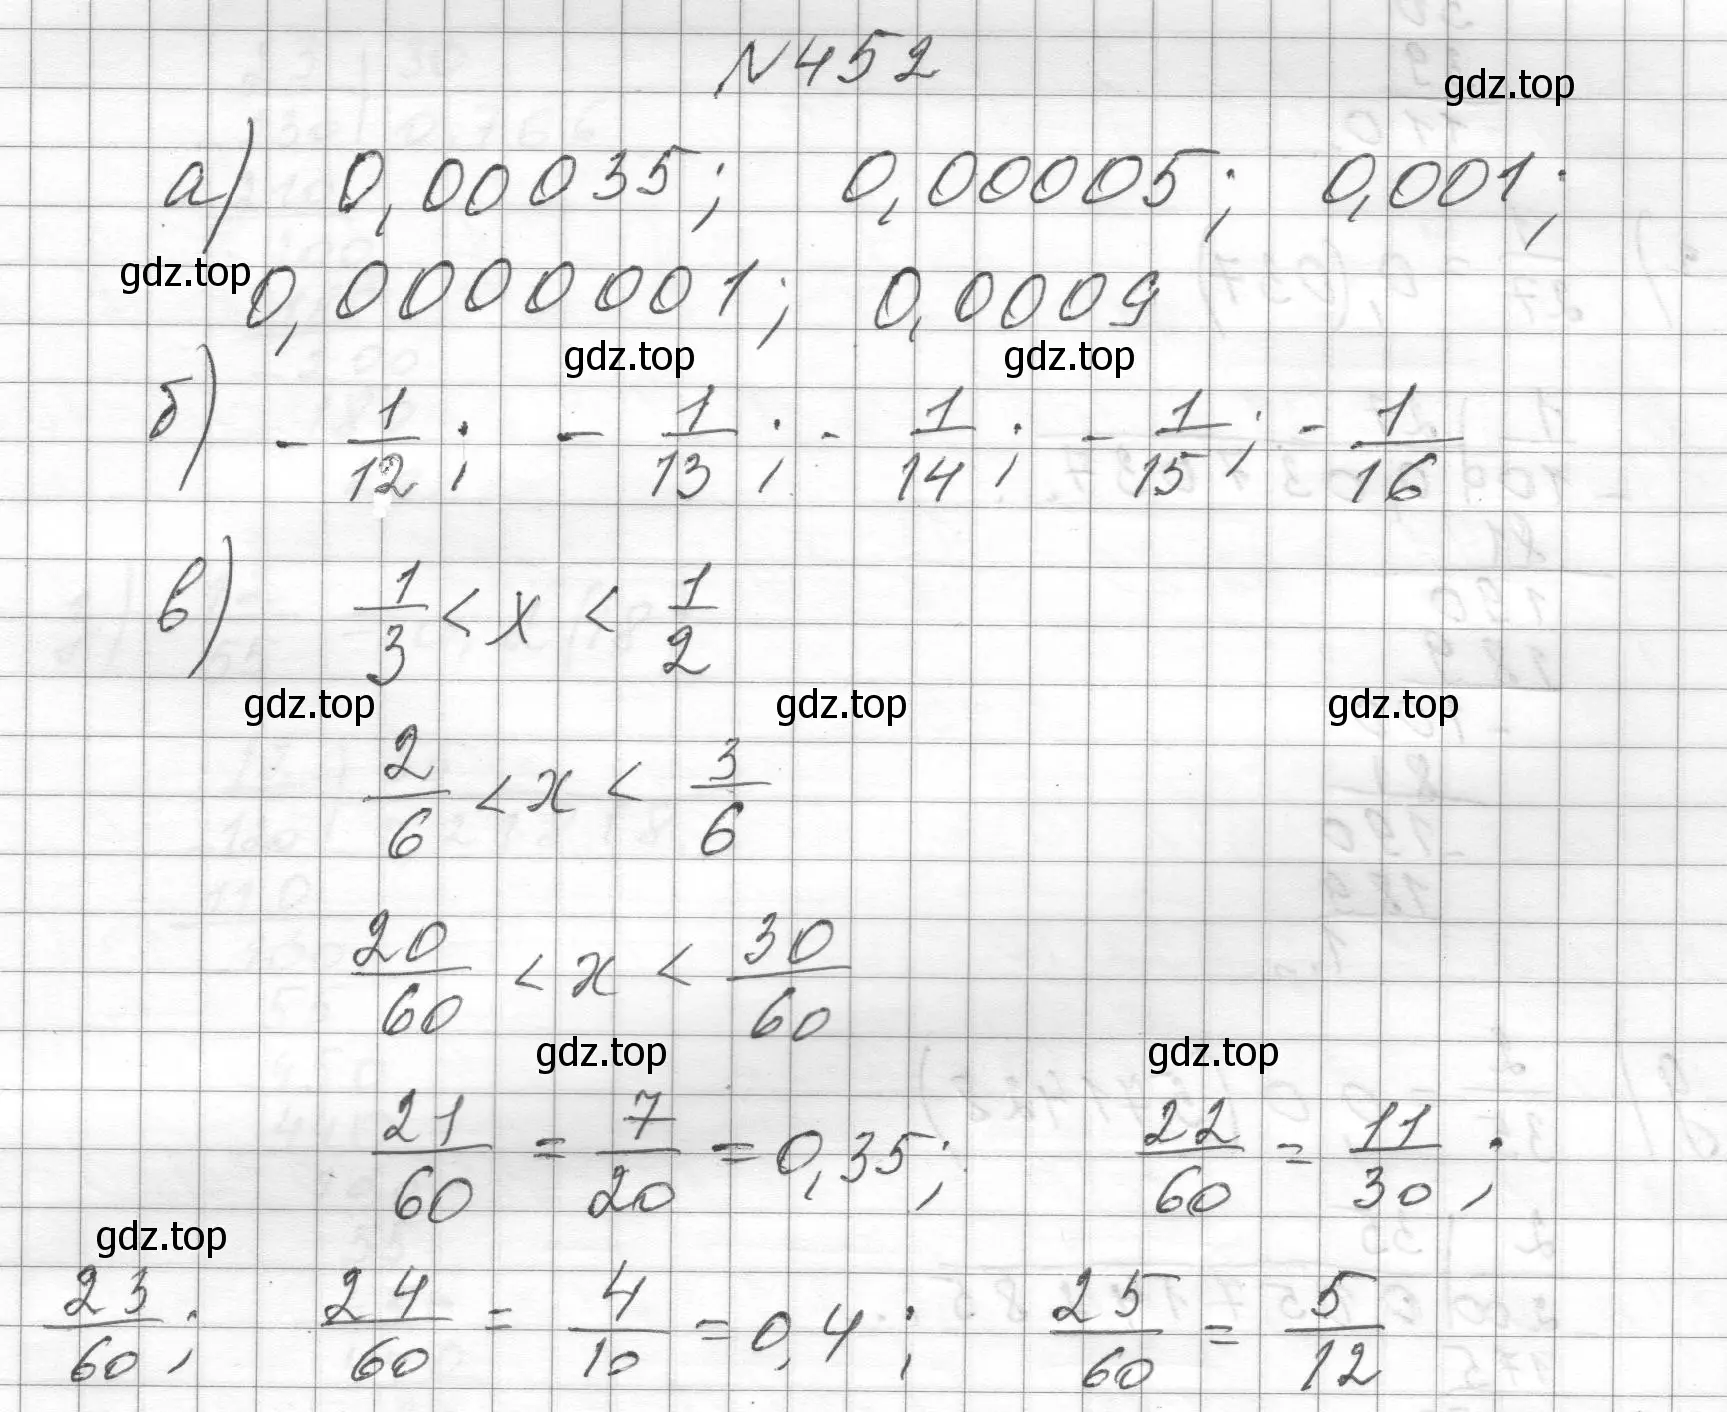 N452
gdz.top
а) 0,00035; 0,00005; 0,001;
gdz.top
0,0000001; 0,0009
gdz.top gdz.top
б) -1/12; -1/13; -1/14; -1/15; -1/16
в) 1/3 < x < 1/2
gdz.top gdz.top gdz.top
2/6 < x < 3/6
20/60 < x < 30/60
gdz.top gdz.top
21/60 = 7/20 = 0,35; 22/60 = 11/30;
gdz.top
23/60; 24/60 = 4/10 = 0,4; 25/60 = 5/12